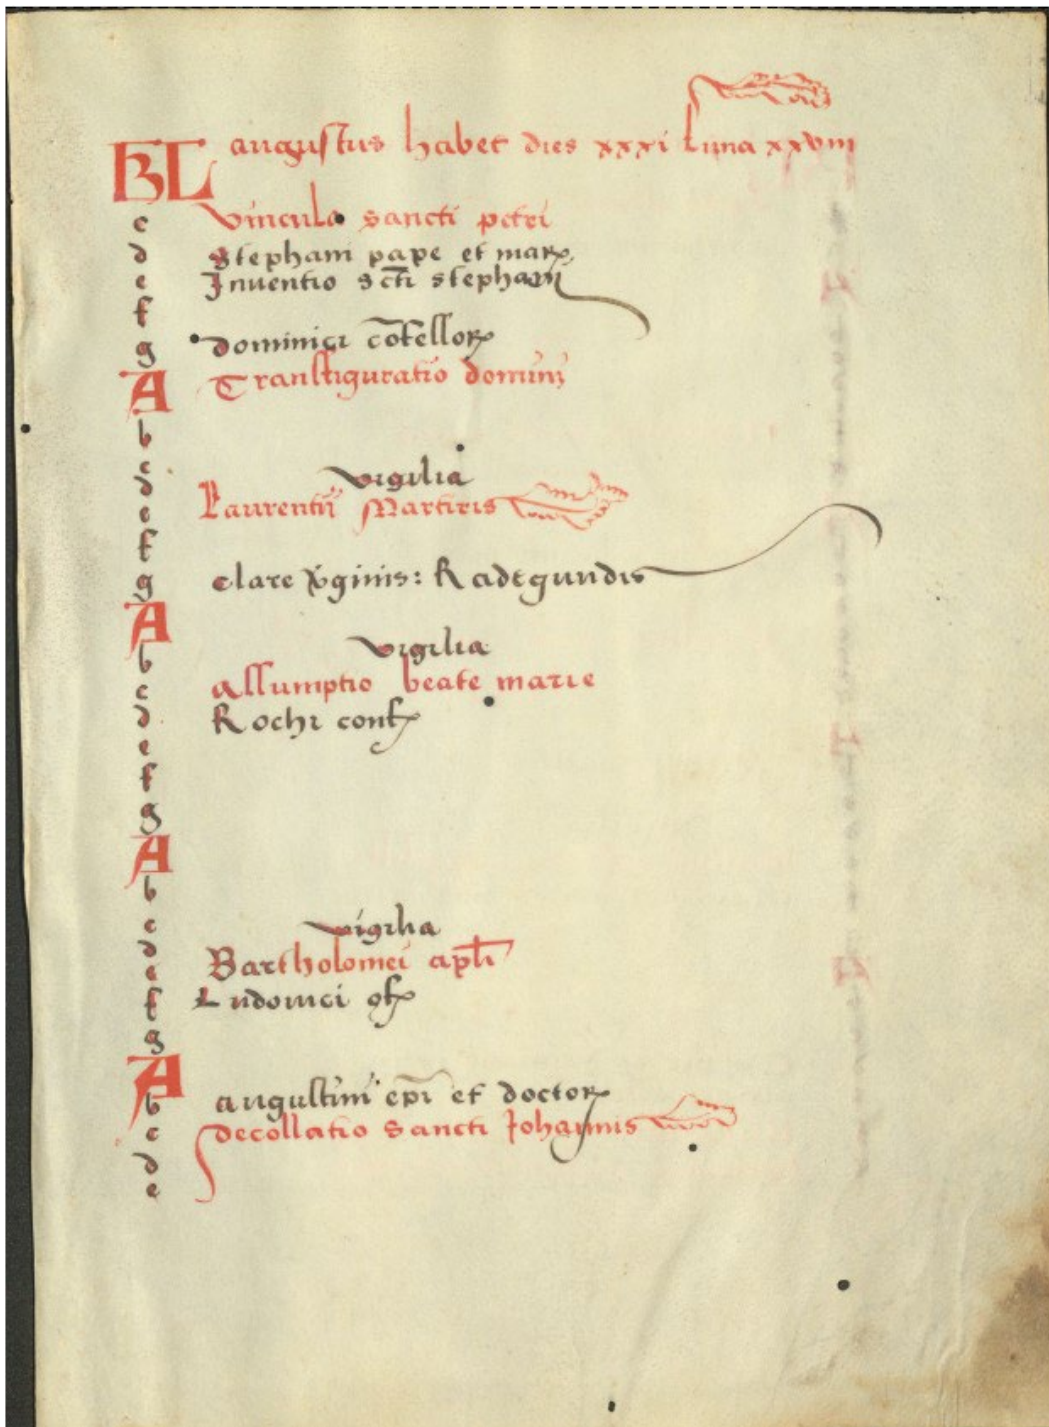 KL augustus habet dies xxxi Luna xxviii
c Vincula sancti petri
d Stephani pape et mar
e Inventio scti stephani
f
g dominici cofessor
A Transfiguratio domini
b
c
d vigilia
e Laurentii Martiris
f
g clare v'ginis: Radegundis
A
b vigilia
c assumptio beate marie
d Rochi conf
e
f
g
A
b
c
d vigilia
e Bartholomei apli
f Ludovici 9f
g
A
b augustini epi et doctor
c decollatio sancti Johannis
d
e